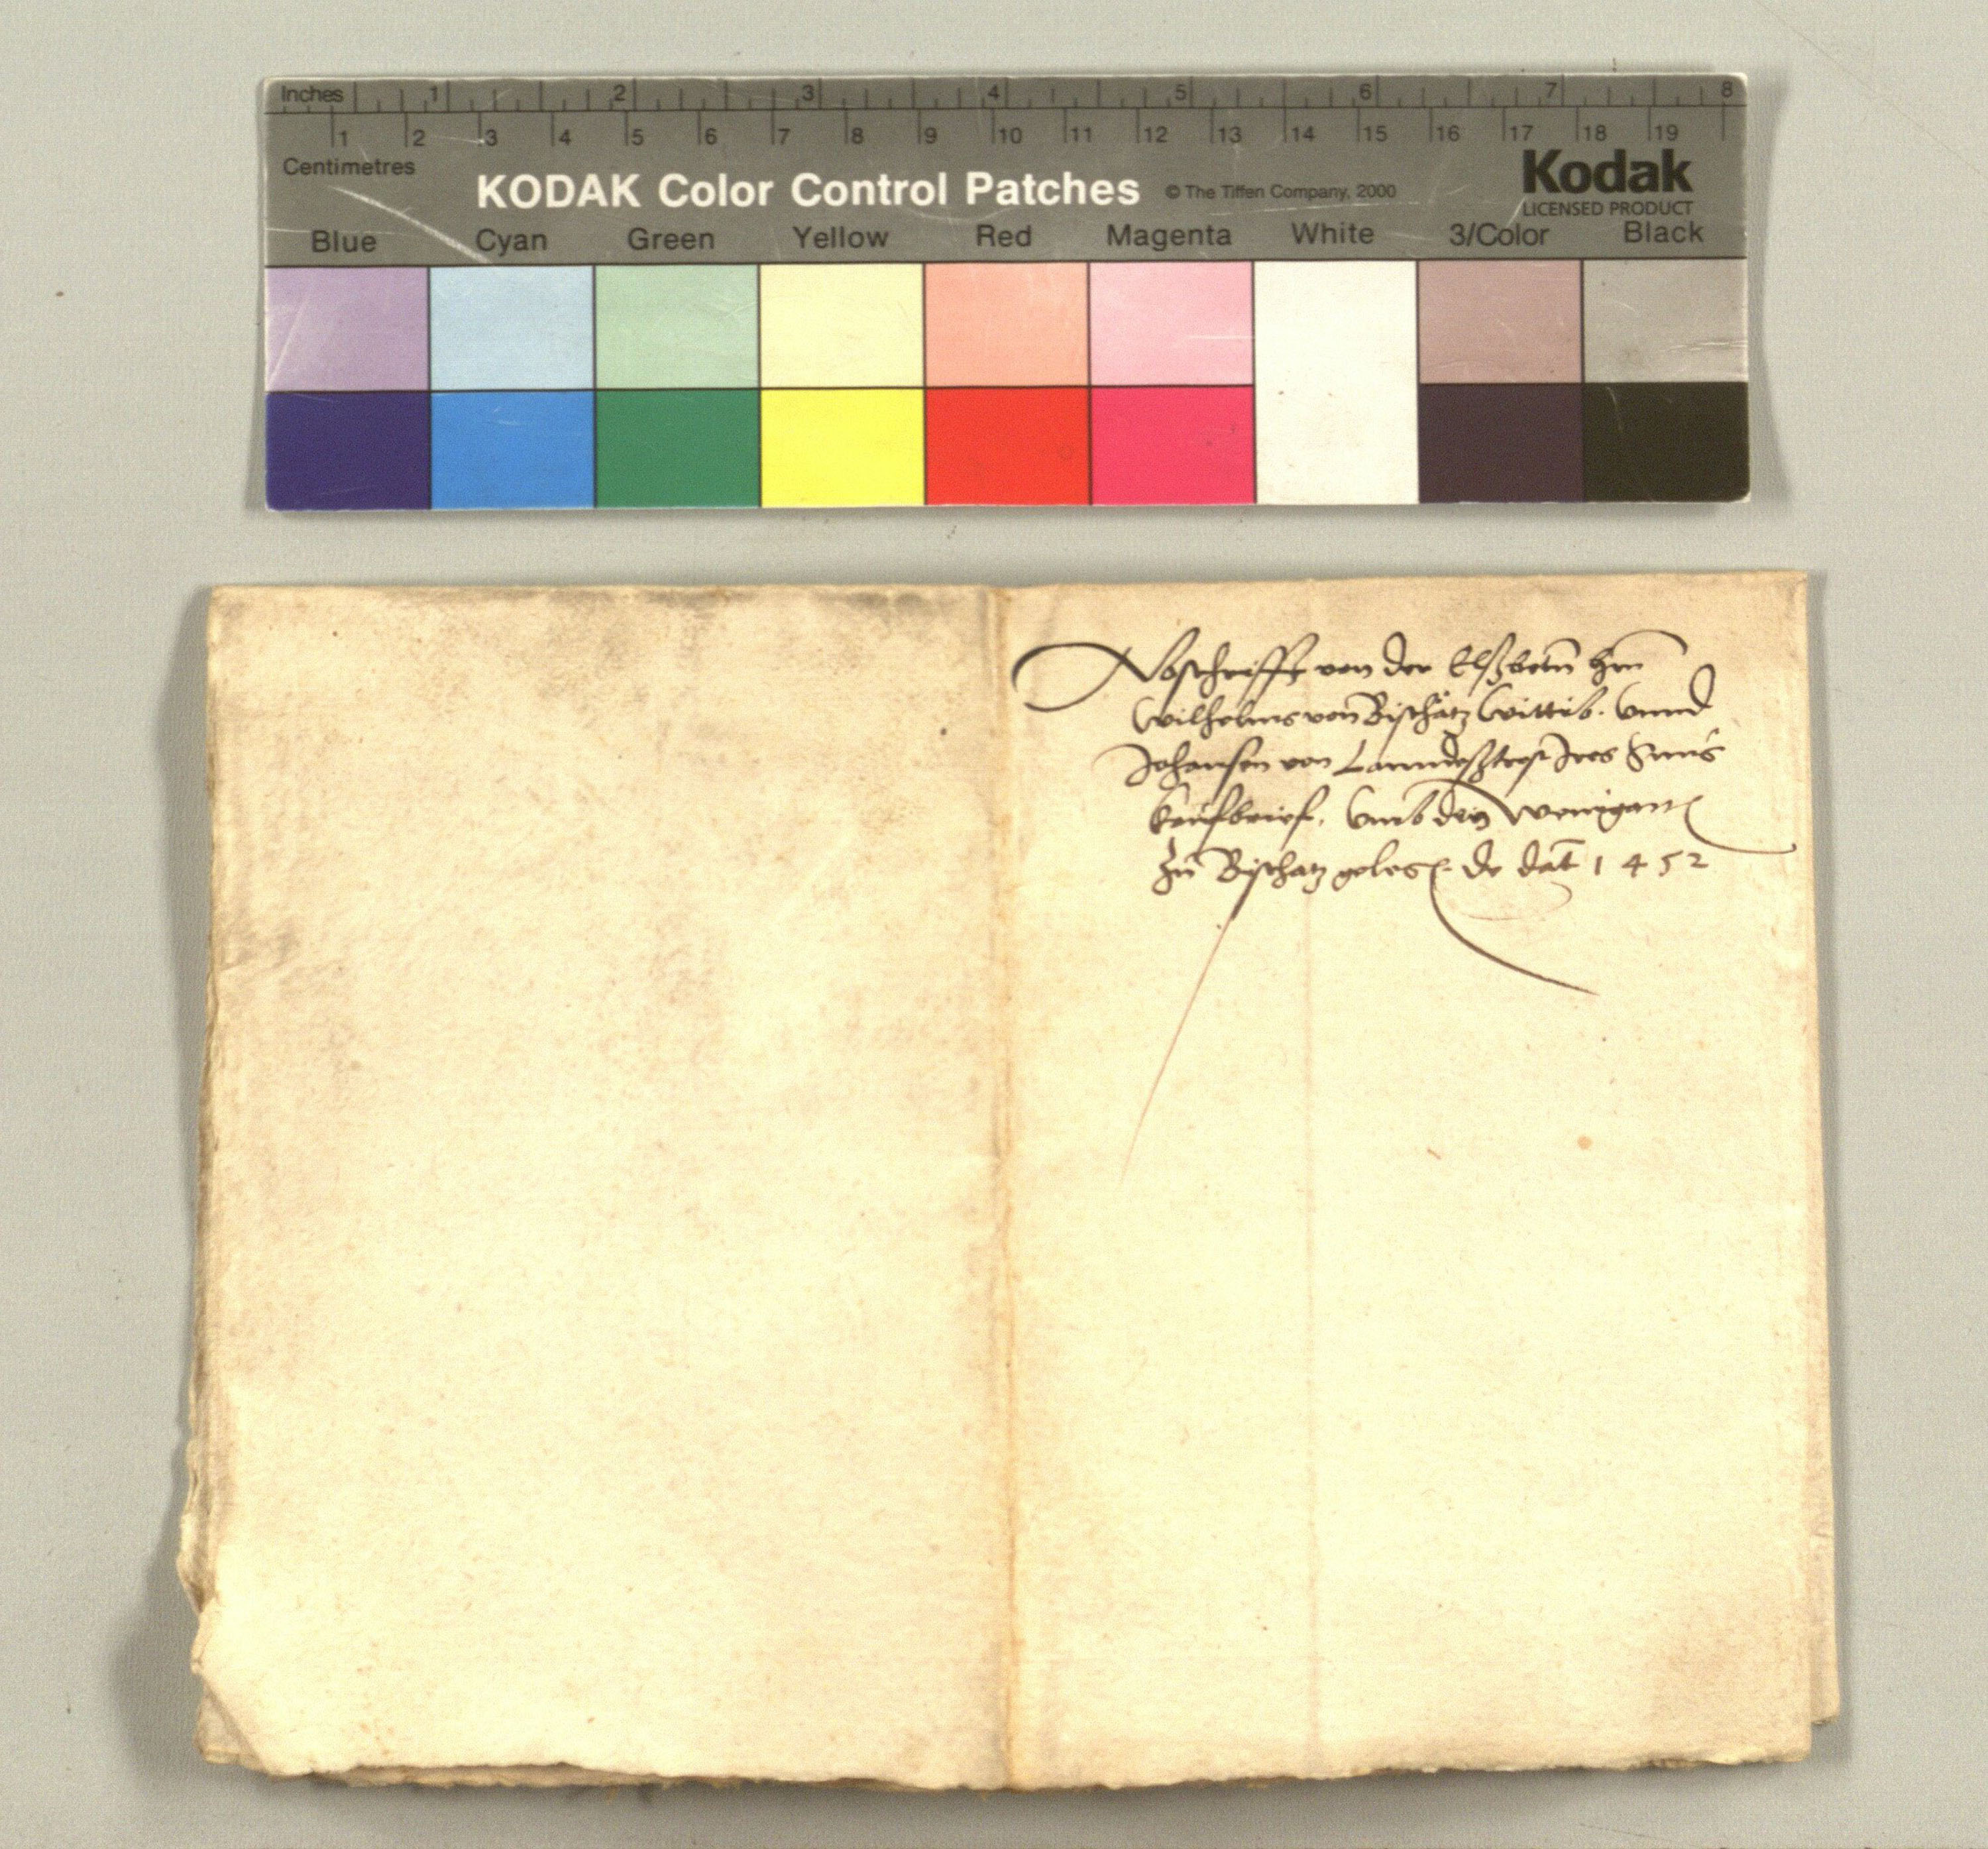 Inches 1 2 3 4 5 6 7 8
1 2 3 4 5 6 7 8 9 10 11 12 13 14 15 16 17 18 19
Centimetres
KODAK Color Control Patches © The Tiffen Company, 2000 Kodak
LICENSED PRODUCT
Blue Cyan Green Yellow Red Magenta White 3/Color Black
Abschrifft von der Elßbetn̄ hrn̄
Wilhelms von Bischatz Wittib. Vnnd
Johansen von Lanndeßtrost Ires Suns
kaufbrief, Vmb den
Zu Bischatz geleg. de dat̄ 1452